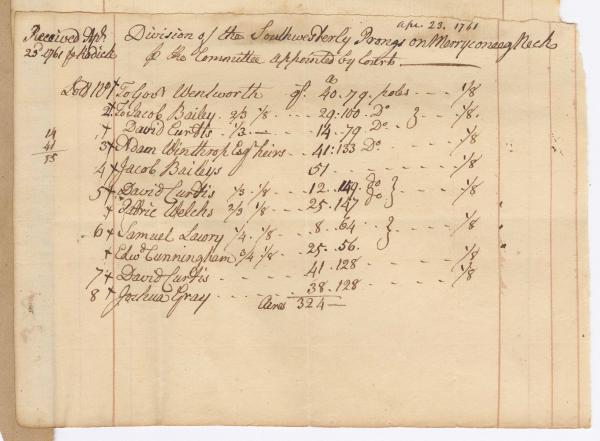 Apr. 23. 1761
Received Aph
23d 1761 p Hodick
Division of the Southwesterly Prongs on Merryconeag Neck
p the Committee appointed by Court
a
Lott No 1 + To Govr Wentworth qt 40. 79 poles - - 1/8
2 + To Jacob Bailey 2/3 1/8 - - - 29. 100 Do } - - 1/8
+ David Curtis 1/3 — 14. 79. Do
3 + Adam Winthrop Esqr heirs - - 41: 133 Do 1/8
4 + Jacob Baileys 51 - - - - 1/8
5 + David Curtis 1/3 . 1/8 - - - 12. 149. do } - - 1/8
+ Patric Welchs 2/3 1/8 - - - 25. 147 do
6 + Samuel Lawry 1/4 . 1/8 - - - 8. 64 - - } - - 1/8
+ Edwd Cunningham 3/4 1/8 - - 25. 56.
7 + David Curtis - - - - - 41. 128 - - - 1/8
8 + Joshua Gray - - - - - 38. 128 - - - - 1/8
Acres 324 —
14
41
55